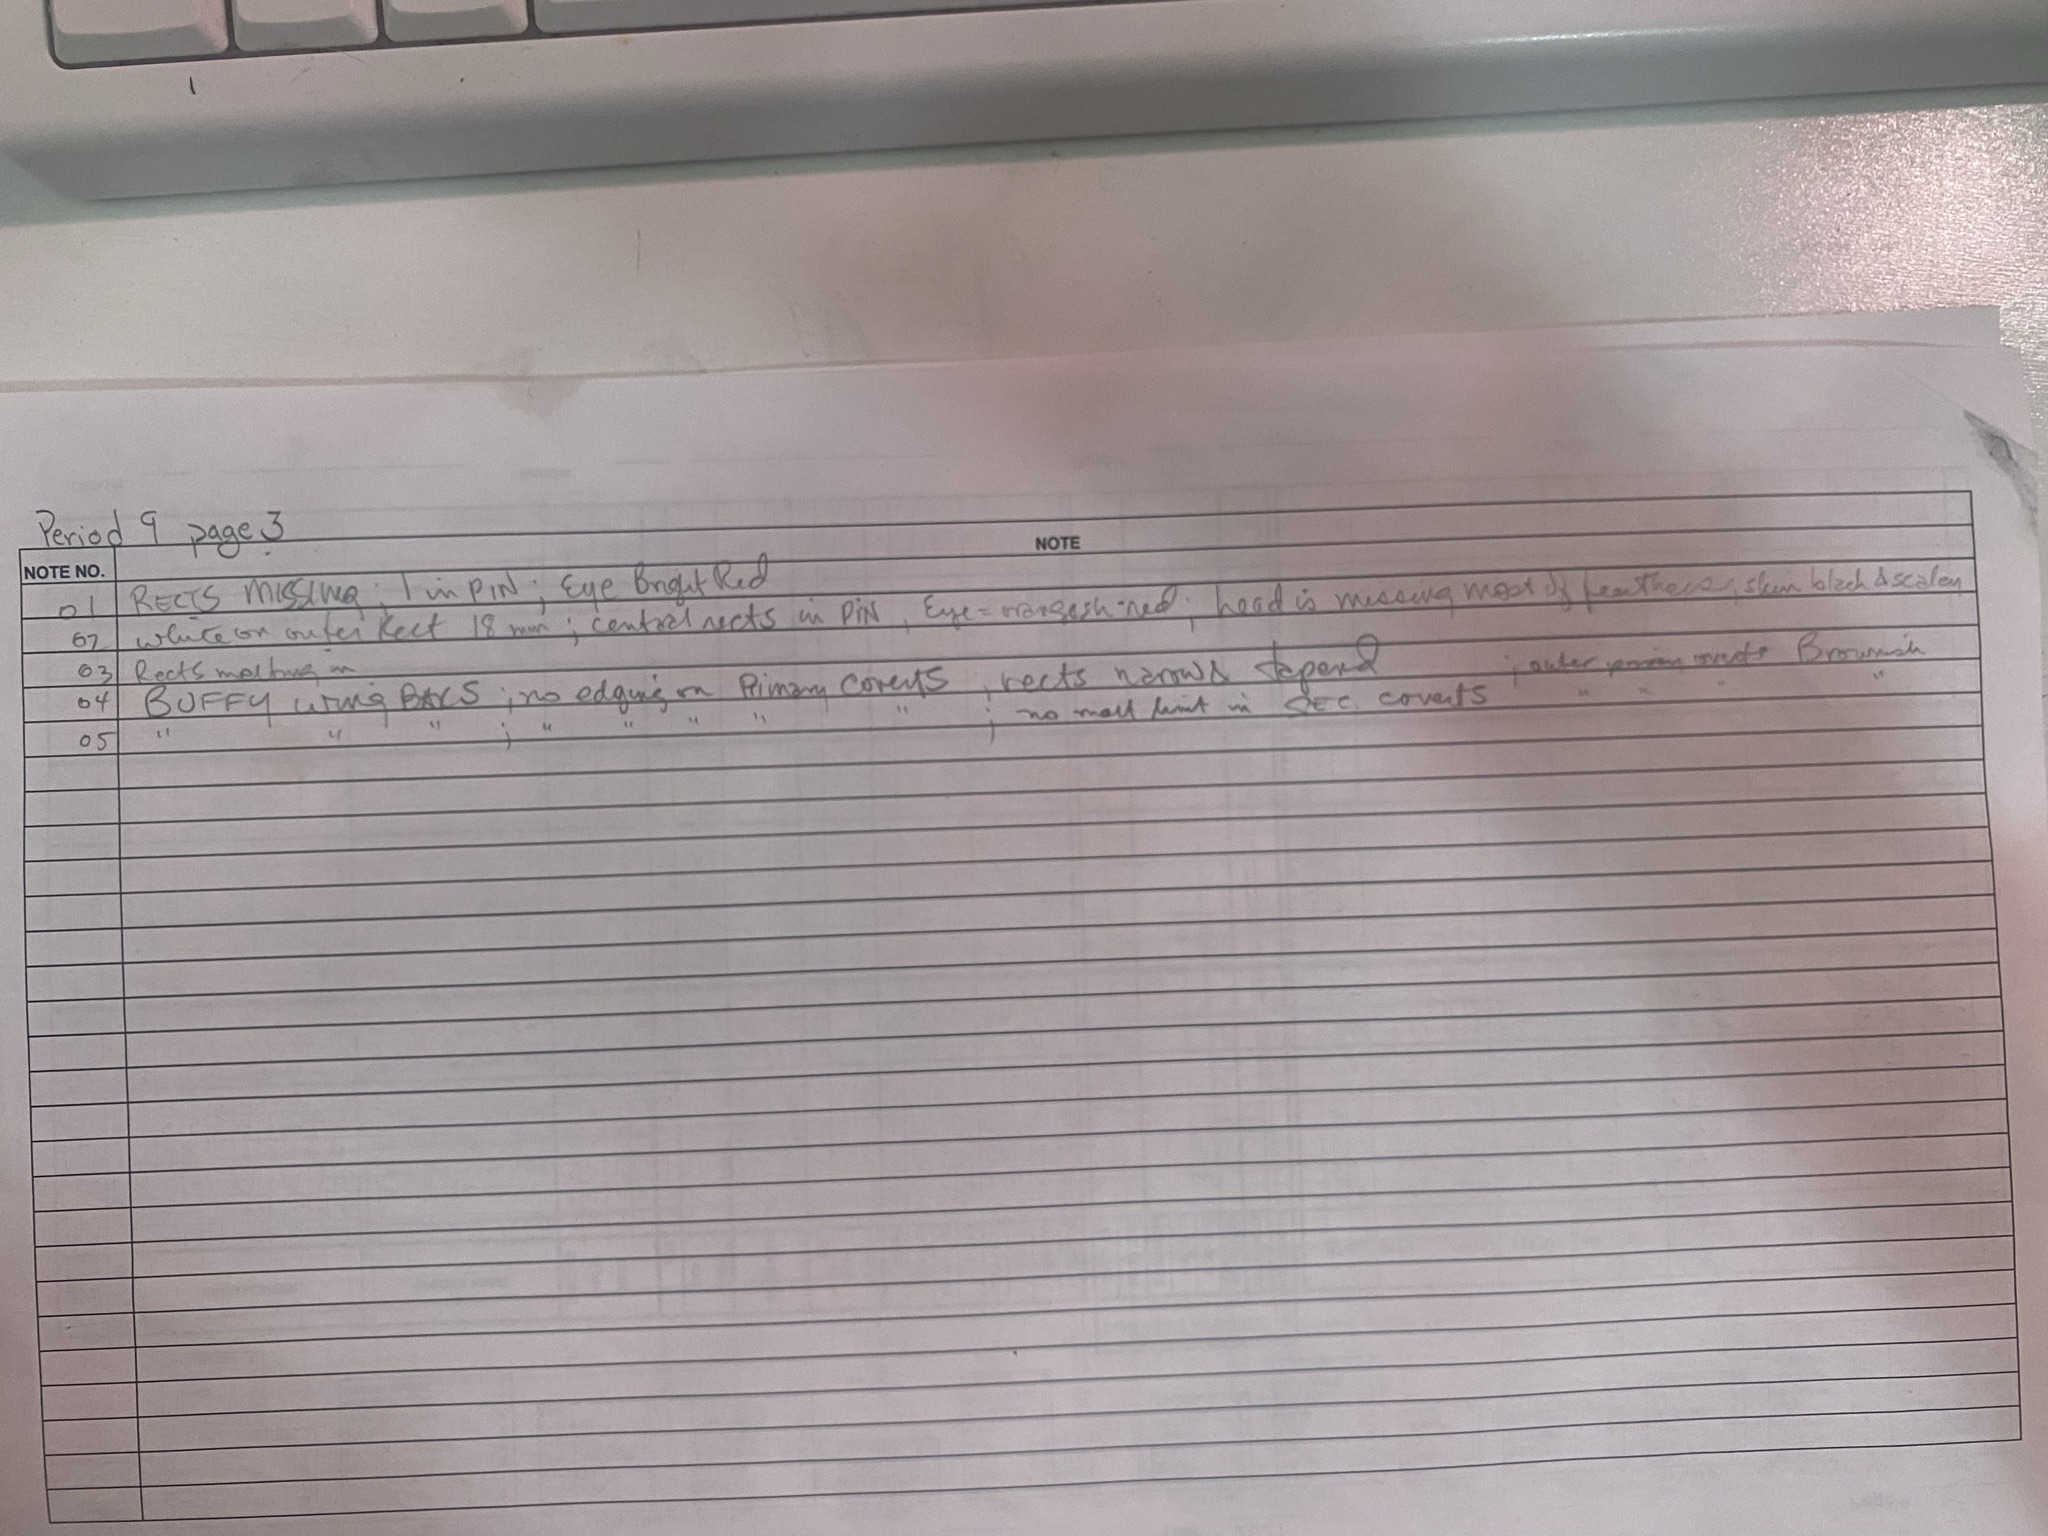 Period 9 page 3
NOTE
NOTE NO.
01 RECTS MISSING; 1 in PIN; Eye Bright Red
02 white on outer Rect 18 mm; central rects in PIN, Eye = orangesh-red; head is missing most of feathers, skin black & scaley
03 Rects molting in
04 BUFFY wing BARS; no edging on Primary Coverts; rects narrow & tapered; outer primary coverts Brownish
05 " " " ; " " " " " ; no molt limit in SEC. coverts " " " "